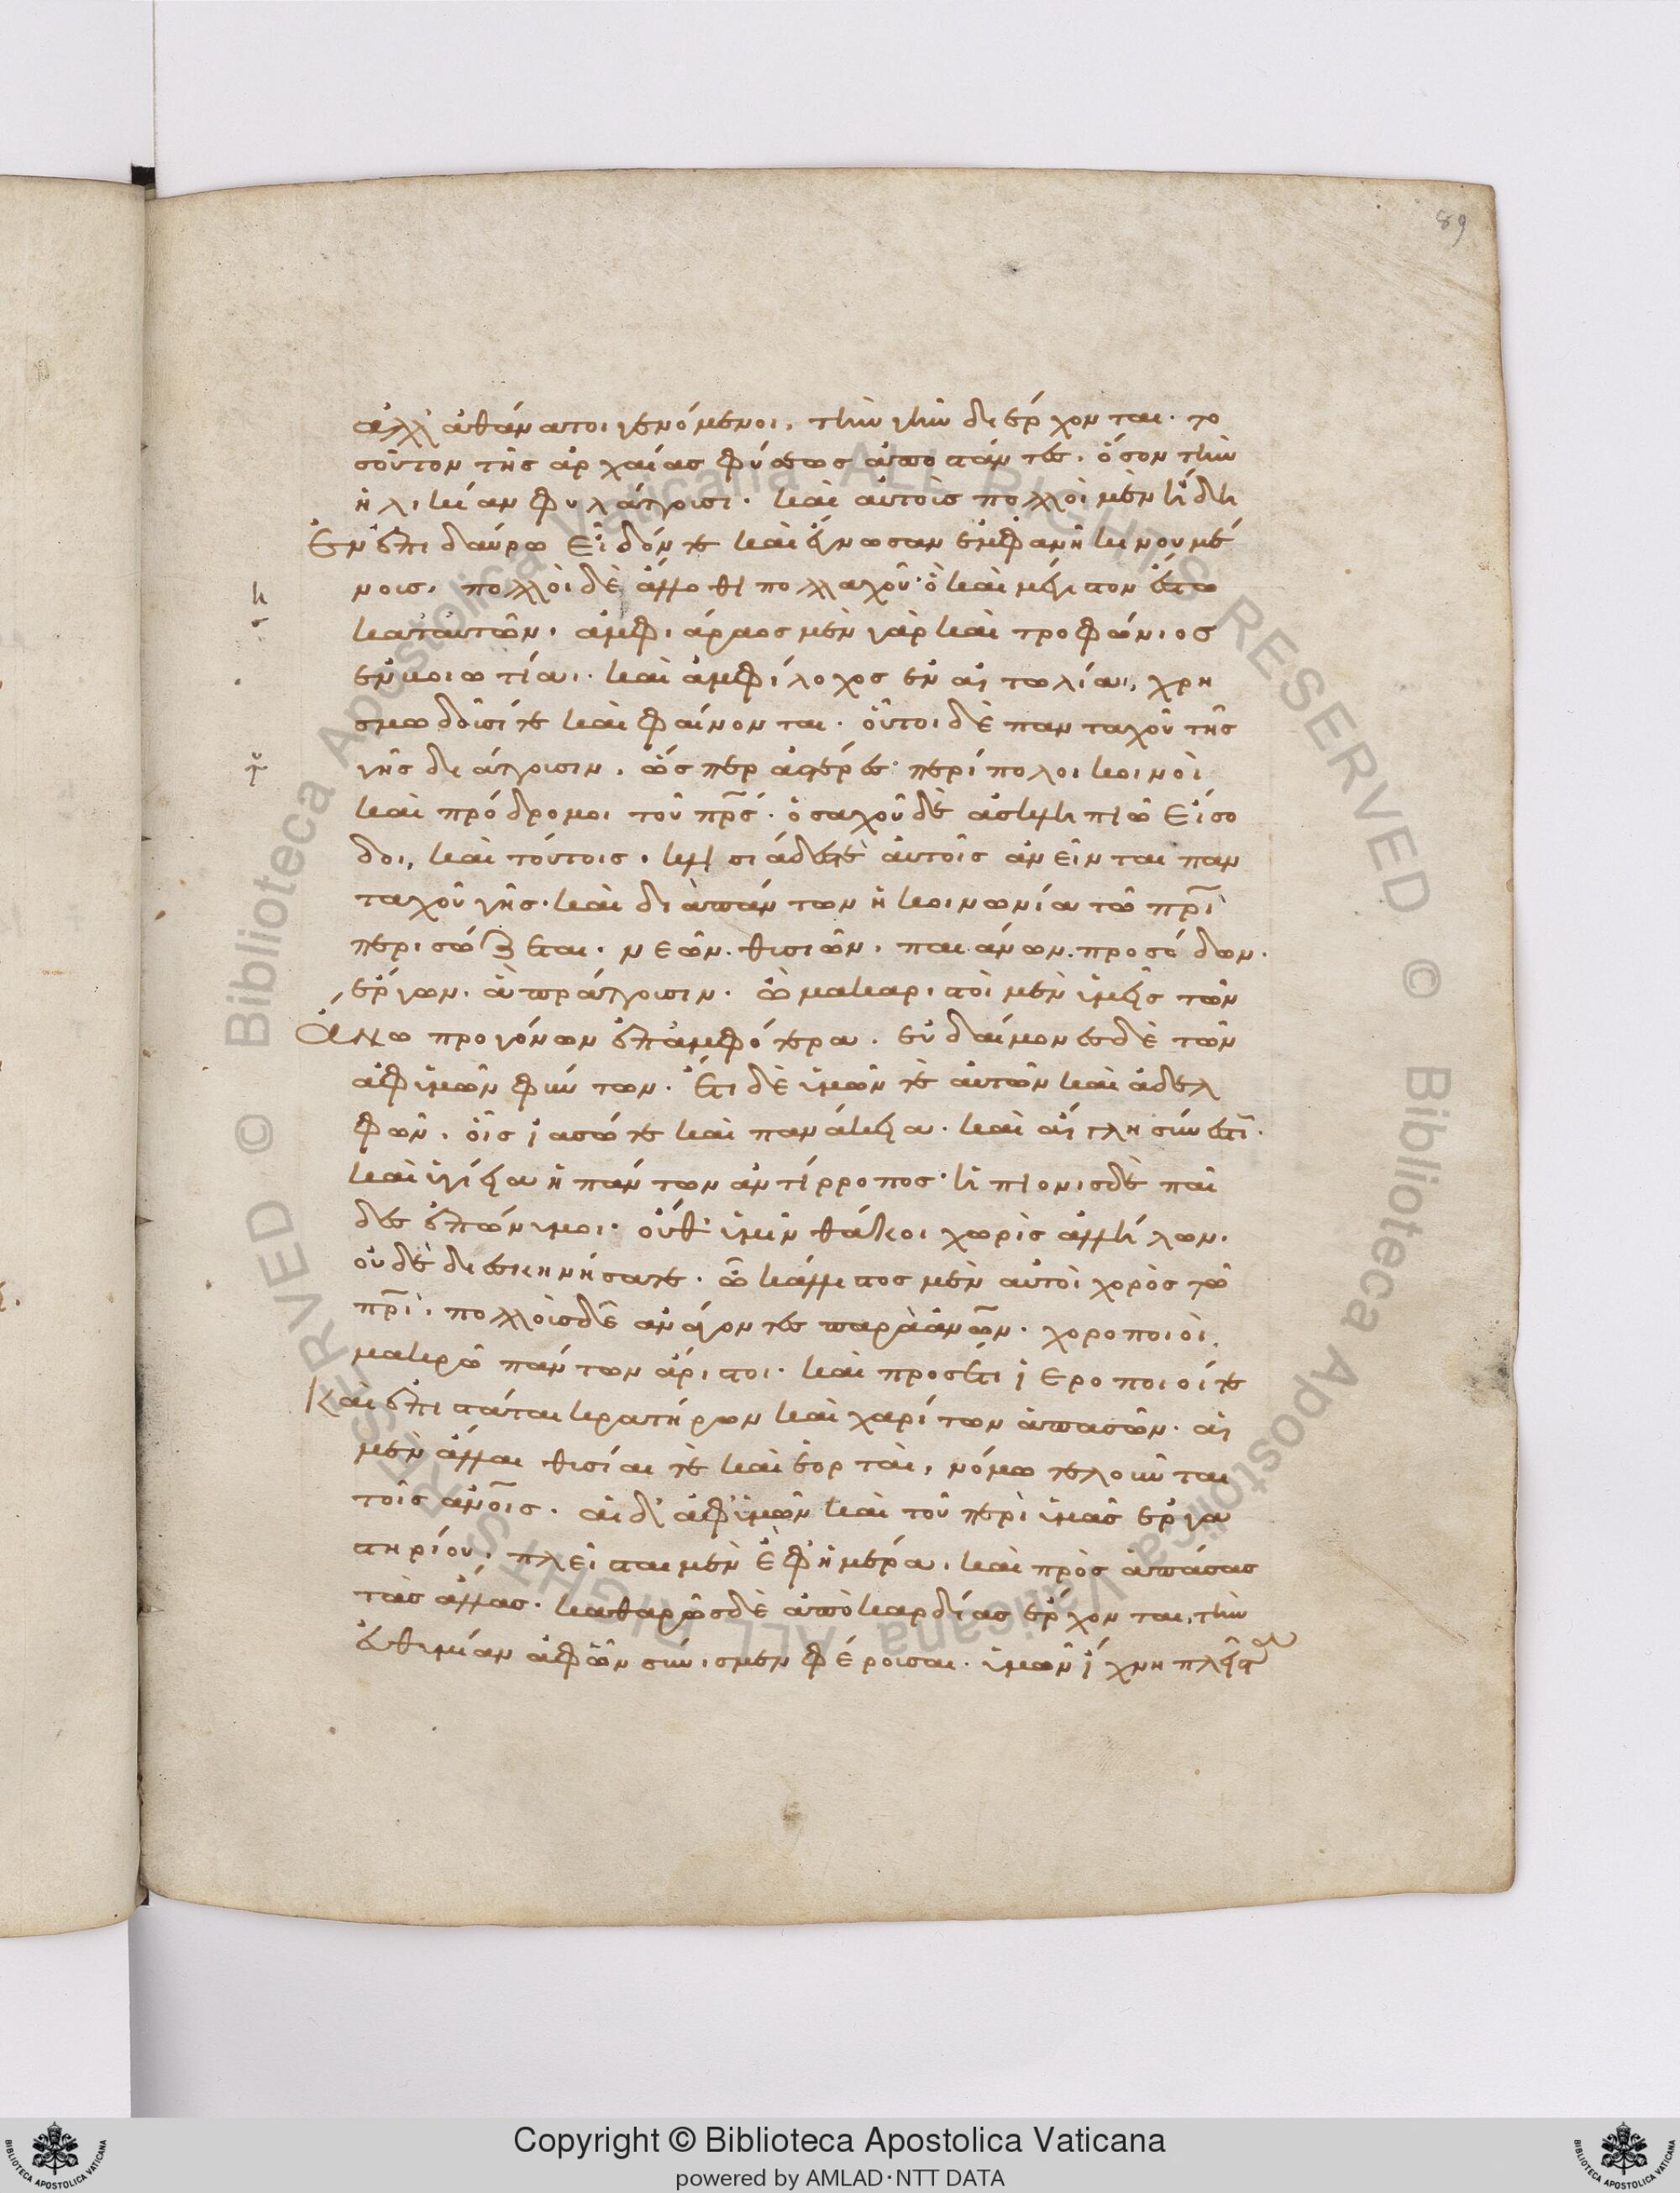 89
ἀλλ' ἀθάνατοι γενόμενοι, τὴν γῆν διέρχονται. το
σοῦτον τῆς ἀρχαίας φύσεως ἀποστάντες. ὅσον τὴν
ἡλικίαν φυλάττουσι. καὶ αὐτοὺς πολλοὶ μὲν ἤδη
ἐν ἐπιδαύρω εἶδόν τε καὶ ἔγνωσαν ἐμφανῆ κινουμέ
νους, πολλοὶ δὲ ἄλλοθι πολλαχοῦ· ὃ καὶ μέγιστον ἔστω
κατ' αὐτῶν. ἀμφιάραος μὲν γὰρ καὶ τροφώνιος
ἐν βοιωτίαι. καὶ ἀμφίλοχος ἐν αἰτωλίαι, χρη
σμωδοῦσί τε καὶ φαίνονται. οὗτοι δὲ πανταχοῦ τῆς
γῆς διάττουσιν, ὥσπερ ἀστέρες περίπολοι κοινοὶ
καὶ πρόδρομοι τοῦ πρς. ὁσαχοῦ δὲ ἀσκληπιῶ εἴσο
δοι, καὶ τούτοις. κλισιάδες τὲ αὐτοῖς ἀνεῖνται παν
ταχοῦ γῆς. καὶ διὰ πάντων ἡ κοινωνία τῶ πρι
περισώζεται. νεῶν. θυσιῶν. παιάνων. προσόδων.
ἔργων. ἃ πράττουσιν. ὦ μακαριστοὶ μὲν ὑμεῖς τῶν
ἄνω προγόνων ἐπ' ἀμφότερα. εὐδαίμονες δὲ τῶν
ἀφ' ὑμῶν φύντων. ἔτι δὲ ὑμῶν τε αὐτῶν καὶ ἀδελ
φῶν. οἷς ἰασώ τε καὶ πανάκεια. καὶ αἴγλη σύνεστι.
καὶ ὑγίεια ἡ πάντων ἀντίρροπος. ἠπιόνης δὲ παῖ
δες ἐπώνυμοι. οὔθ' ὑμῖν θᾶκοι χωρὶς ἀλλήλων.
οὐδὲ διεσκηνήσατε. ὦ κάλλιστος μὲν αὐτοὶ χορὸς τῶ
πρι. πολλοὺς δὲ ἀνάγοντες παρὰ ἀνων. χοροποιοὶ
μακρῶ πάντων ἄριστοι. καὶ προσέτι ἱεροποιοί τε
καὶ ἐπιστάται κρατήρων καὶ χαρίτων ἁπασῶν. αἱ
μὲν ἄλλαι θυσίαι τε καὶ ἑορταὶ, νόμω τελοῦνται
τοῖς ἀνοις. αἱ δ' ἀφ' ὑμῶν καὶ τοῦ περὶ ὑμᾶς ἐργα
στηρίου. πλεῖσται μὲν ἐφ' ἡμέρα. καὶ πρὸς ἁπάσας
τὰς ἄλλας. καθαρῶς δὲ ἀπὸ καρδίας ἔρχονται, τὴν
εὐθυμίαν ἀφ' ὧν σύνισμεν φέρουσαι. ὑμῶν ἴχνη πλεῖστα